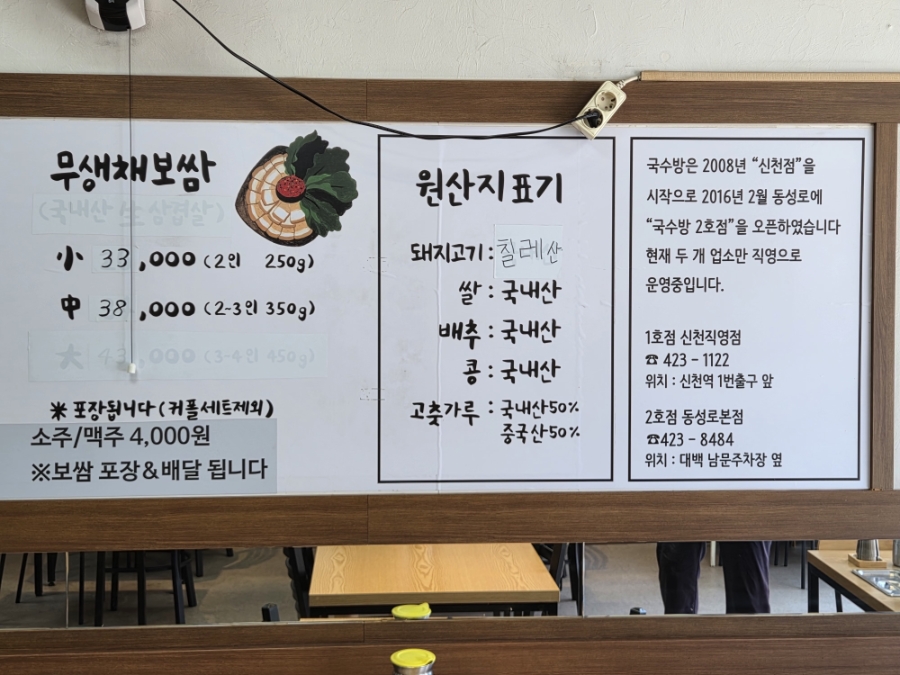 무생채보쌈
(국내산 生 삼겹살)
小 33,000 (2인 250g)
中 38,000 (2-3인 350g)
大 43,000 (3-4인 450g)
※ 포장됩니다 (커플세트제외)
소주/맥주 4,000원
※보쌈 포장&배달 됩니다
원산지표기
돼지고기 : 칠레산
쌀 : 국내산
배추 : 국내산
콩 : 국내산
고춧가루 : 국내산50%
중국산50%
국수방은 2008년 “신천점”을
시작으로 2016년 2월 동성로에
“국수방 2호점”을 오픈하였습니다
현재 두 개 업소만 직영으로
운영중입니다.
1호점 신천직영점
☎ 423 - 1122
위치 : 신천역 1번출구 앞
2호점 동성로본점
☎423 - 8484
위치 : 대백 남문주차장 옆